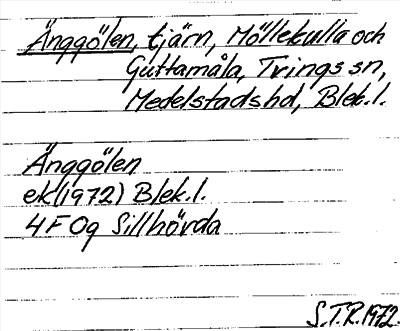 Änggölen, tjärn, Möllekulla och
Guttamåla, Tvings sn,
Medelstads hd, Blek. l.
Änggölen
ek (1972) Blek. l.
4F Og Sillhövda
S.T.R. 1972.